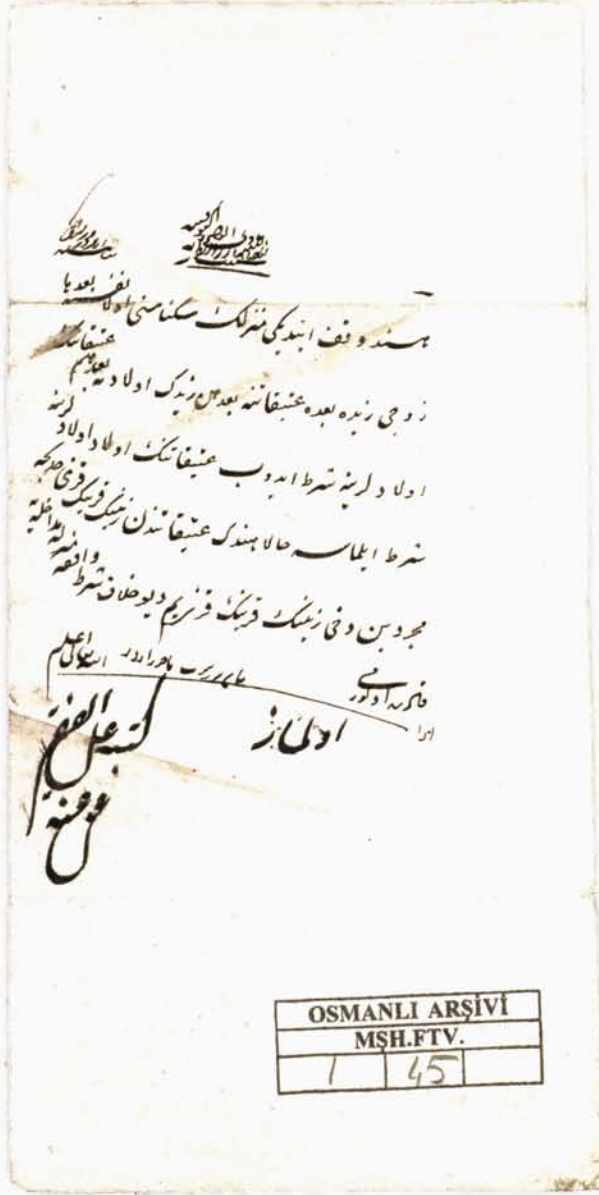 هند وقف ايتديكى منزلك سكناسنى اولا نفسنه بعد
زوجى زيده بعده عتيقاتنه بعدهن زيدك اولادينه بعدهم عتيقاتنك
اولادلرينه شرط ايدوب عتيقاتنك اولاد اولادلرينه
شرط ايلماسه حالا هندك عتيقاتندن زينبك قزينك قزى خديجه
مجرد بن دخى زينبك قزينك قزىيم ديو خلاف شرط واقفه منزله مداخله يه
قادره اولورمى
الله تعالى اعلم
اولماز
كتبه على الفقير
عفى عنه
OSMANLI ARŞİVİ
MŞH.FTV.
1 45